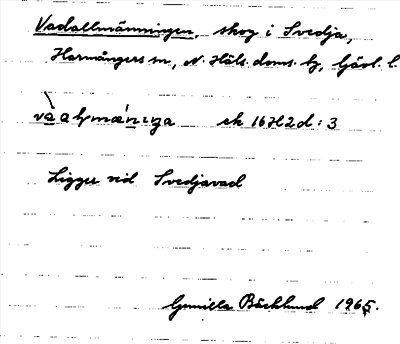 Vadallmänningen, skog i Svedja,
Harmångers sn, N. Häls. doms. hg, Gävl. l.
ek 16H2d:3
Ligger vid Svedjavad
Gunilla Bäcklund 1965.